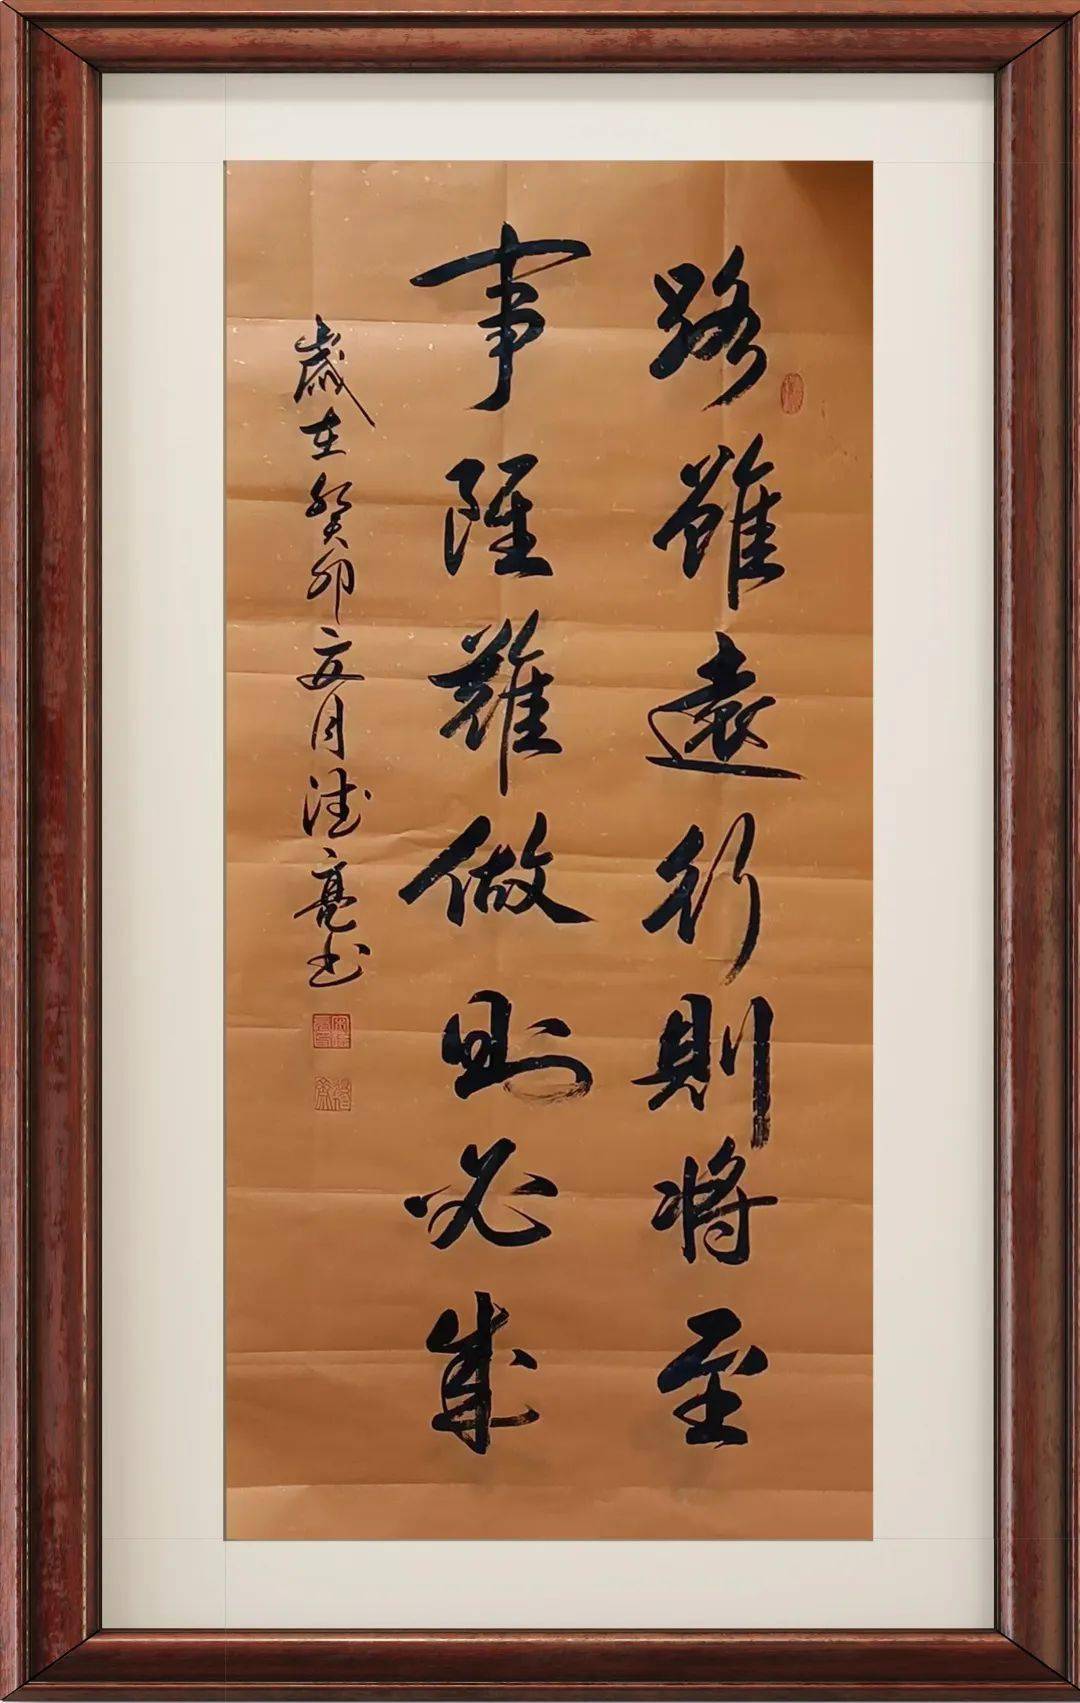 路雖遠行則将至
事雖難做則必成
歲在癸卯亥月德亮书